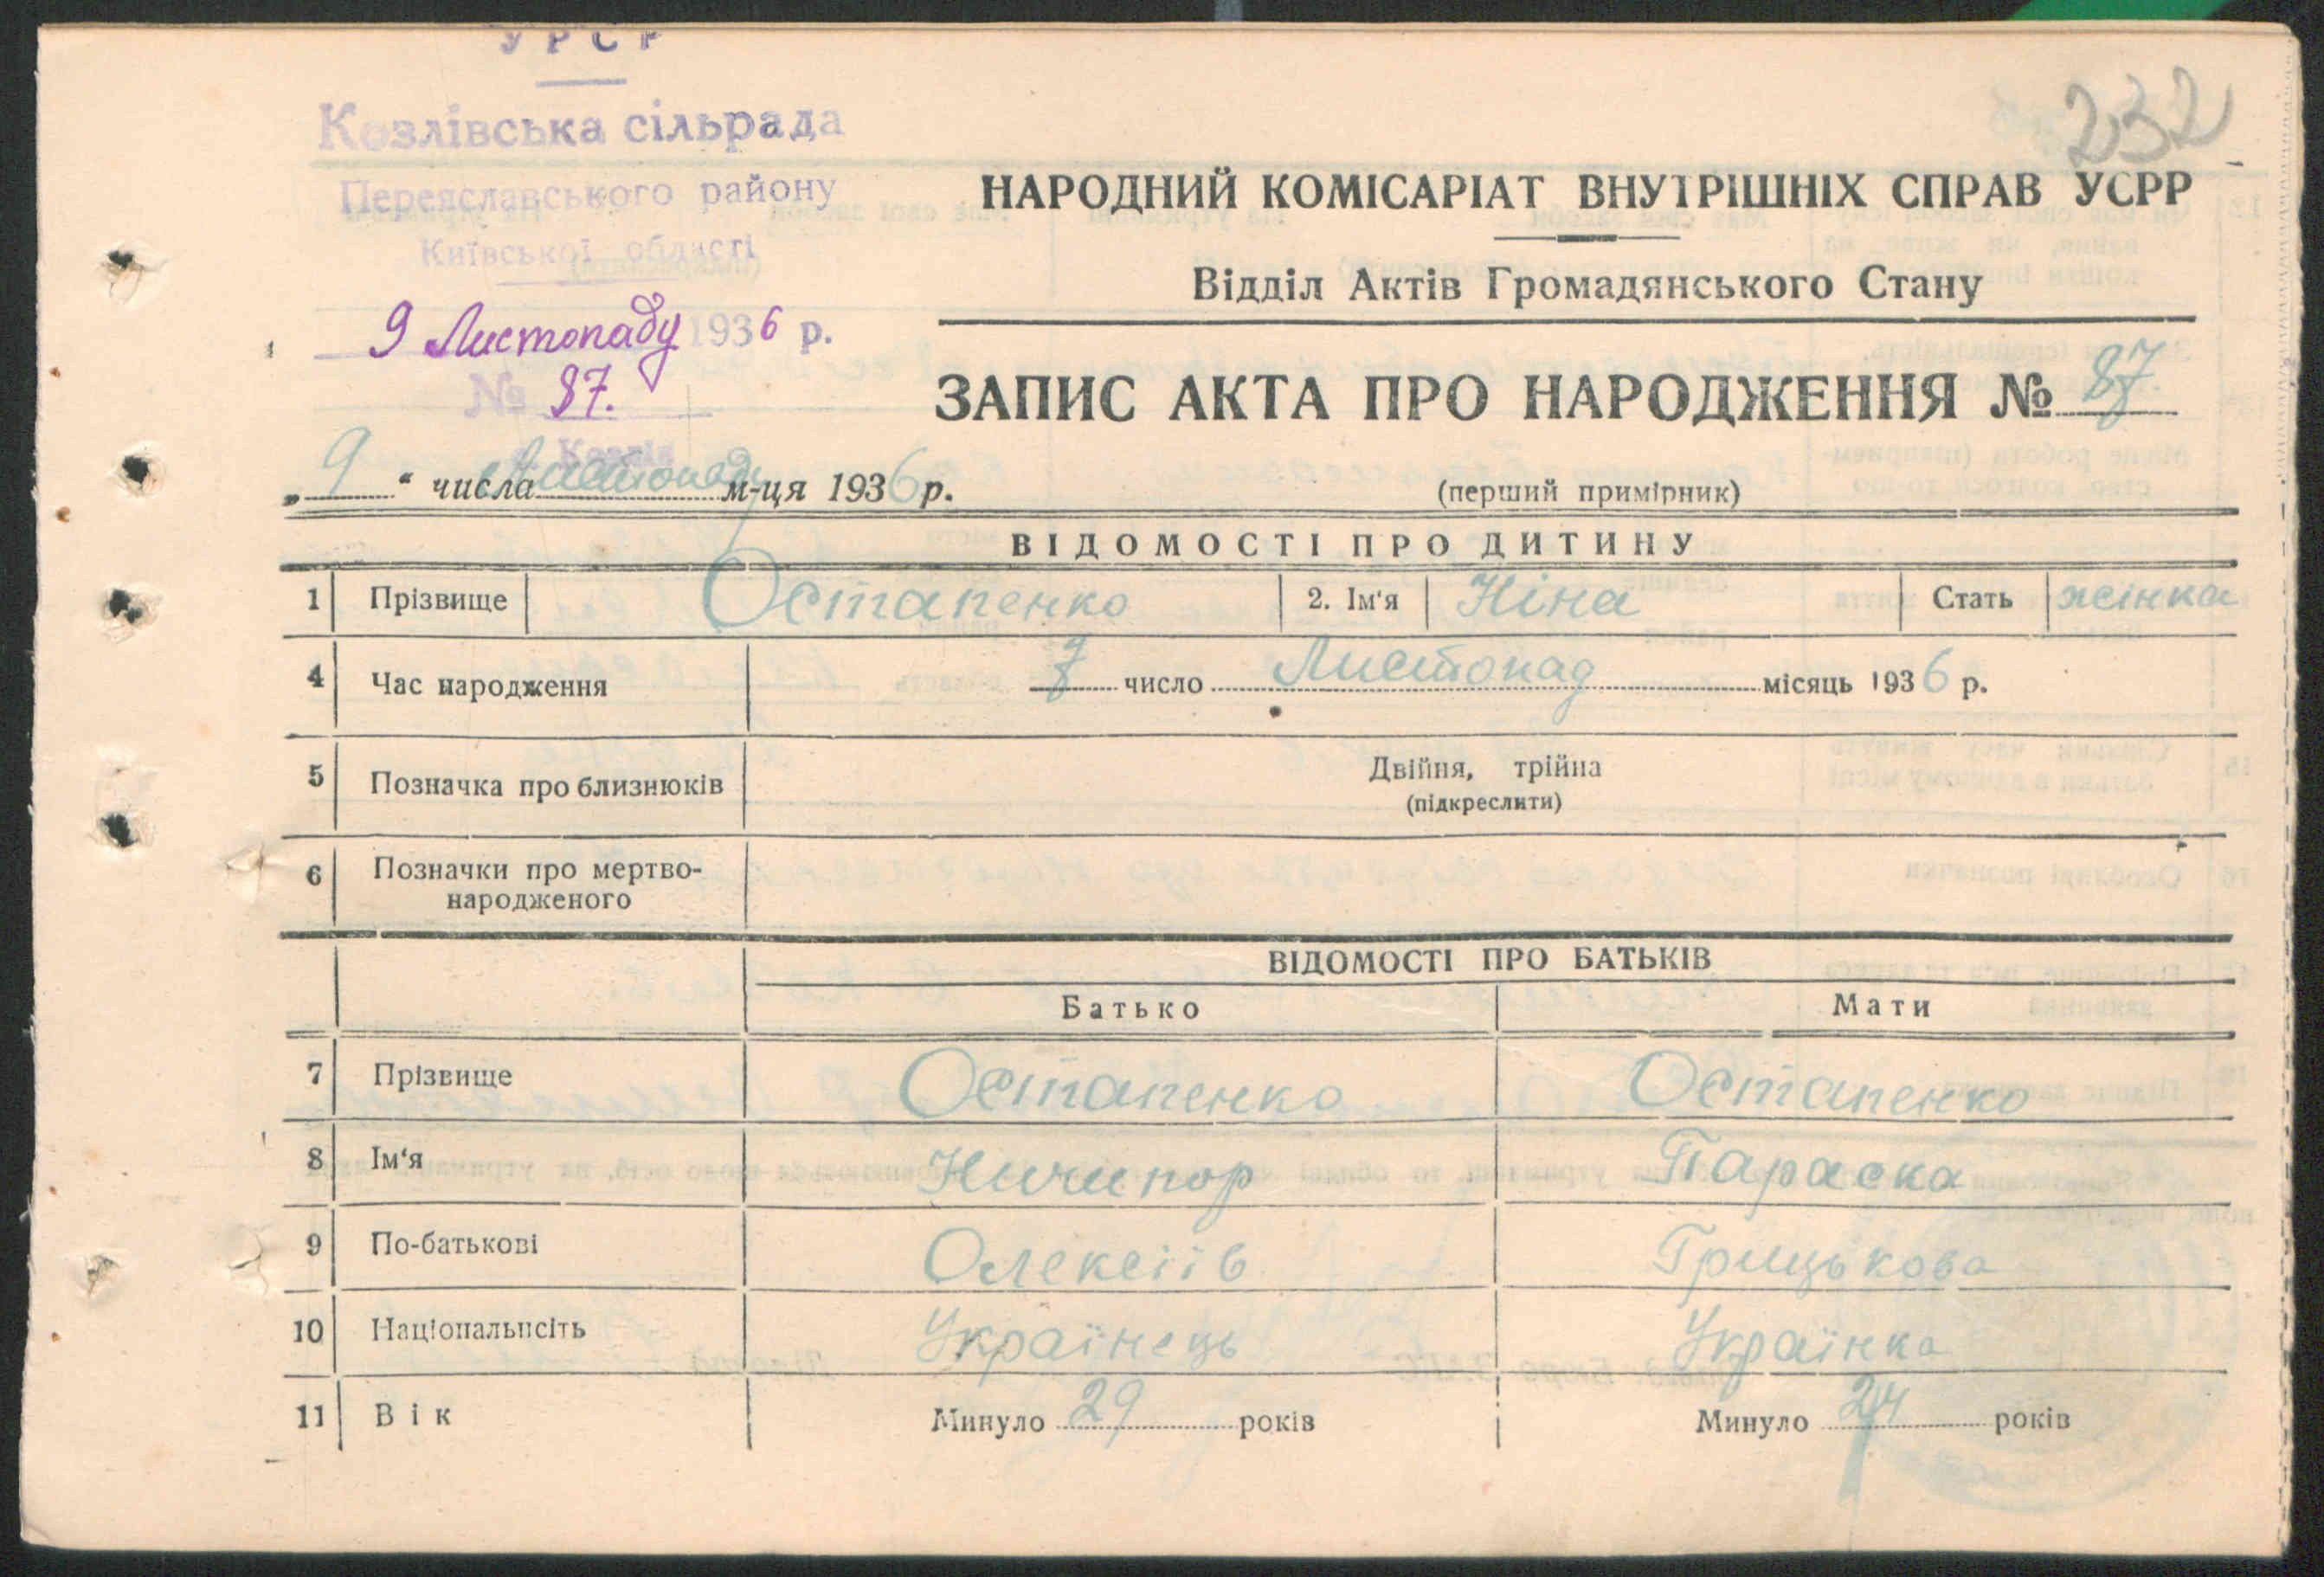 УРСР
Козлівська сільрада
Переяславського району
Київської області
9 Листопаду 1936 р.
№ 87.
с. Козлів
232
НАРОДНИЙ КОМІСАРІАТ ВНУТРІШНІХ СПРАВ УСРР
Відділ Актів Громадянського Стану
ЗАПИС АКТА ПРО НАРОДЖЕННЯ № 87
„ 9 “ числа Листопаду м-ця 1936 р.
(перший примірник)
ВІДОМОСТІ ПРО ДИТИНУ
1 Прізвище Остапенко 2. Ім'я Ніна Стать жінка
4 Час народження 7 число Листопад місяць 1936 р.
5 Позначка про близнюків Двійня, трійна
(підкреслити)
6 Позначки про мертво-
народженого
ВІДОМОСТІ ПРО БАТЬКІВ
Батько Мати
7 Прізвище Остапенко Остапенко
8 Ім'я Ничипор Параска
9 По-батькові Олексіїв Грицькова
10 Націопальпсіть Українець Українка
11 Вік Минуло 29 років Минуло 24 років